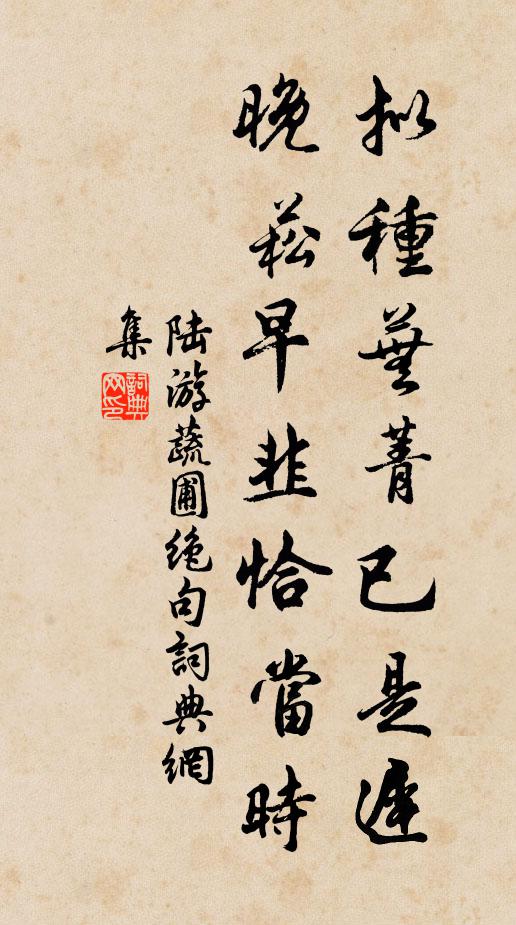 拟種蕪菁已是遲
晚菘早韭恰當時
陆游蔬圃绝句詞典網
集
詞典网印